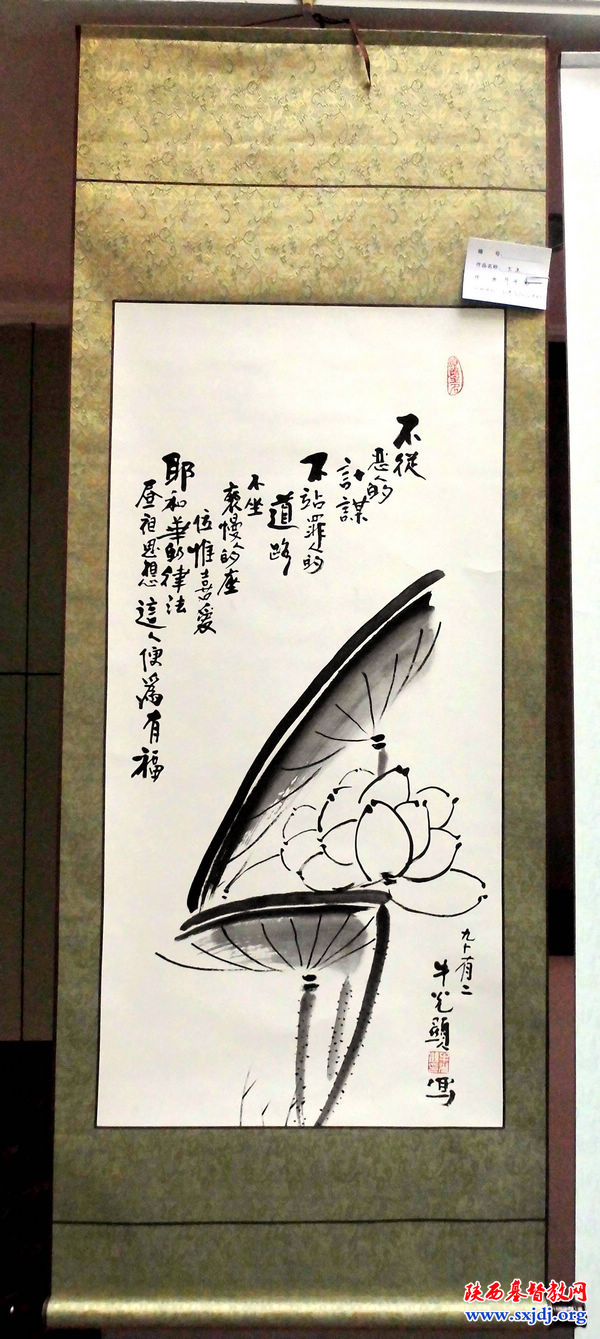 不從
惡人的
計謀
不站罪人的
道路
不坐
褻慢人的座
位惟喜爱
耶和華的律法
昼夜思想這人便為有福
九十有二
牛光顯
寫
编 号
作品名称
陕西基督教网
www.sxjdj.org